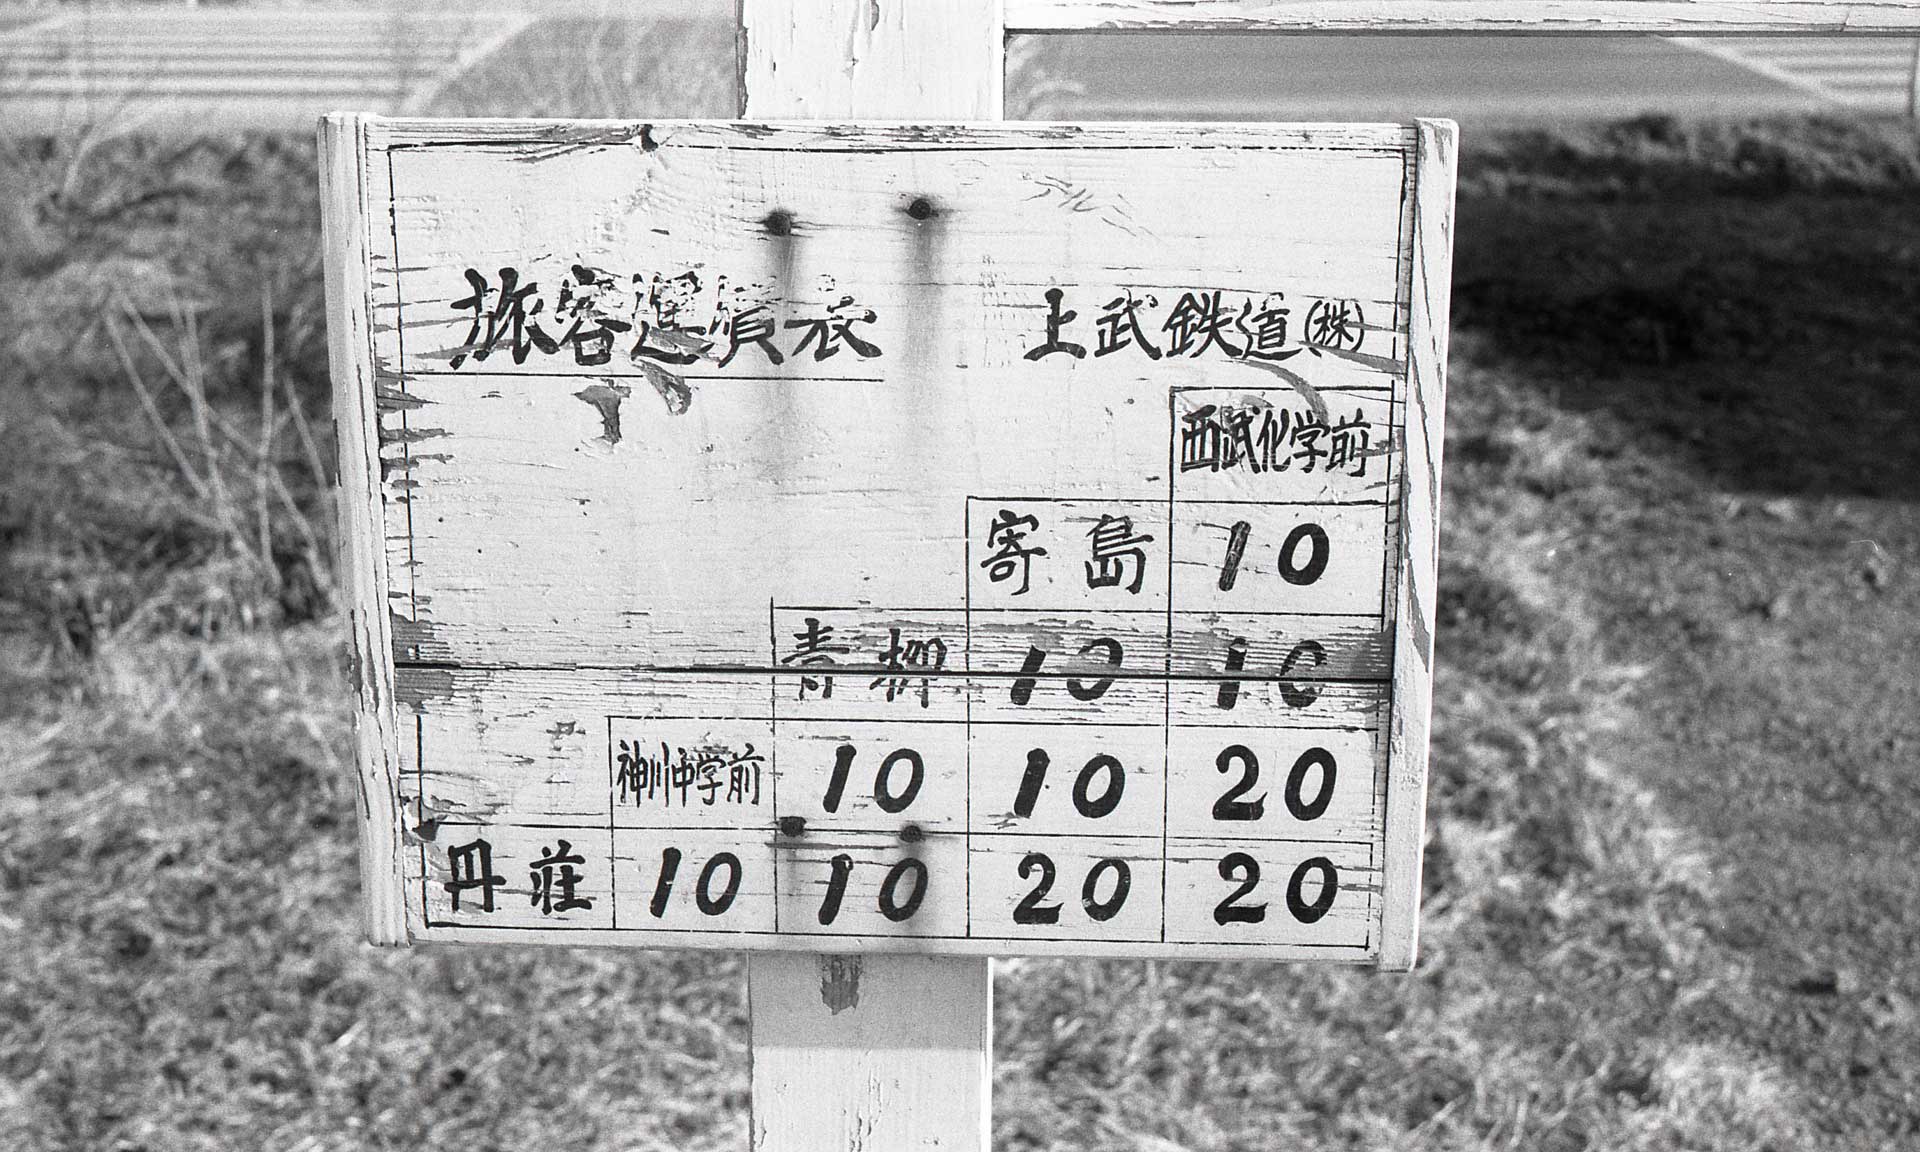 旅客運賃表 上武鉄道(株)
西武化学前
寄島 10
青柳 10 10
神川中学前 10 10 20
丹荘 10 10 20 20